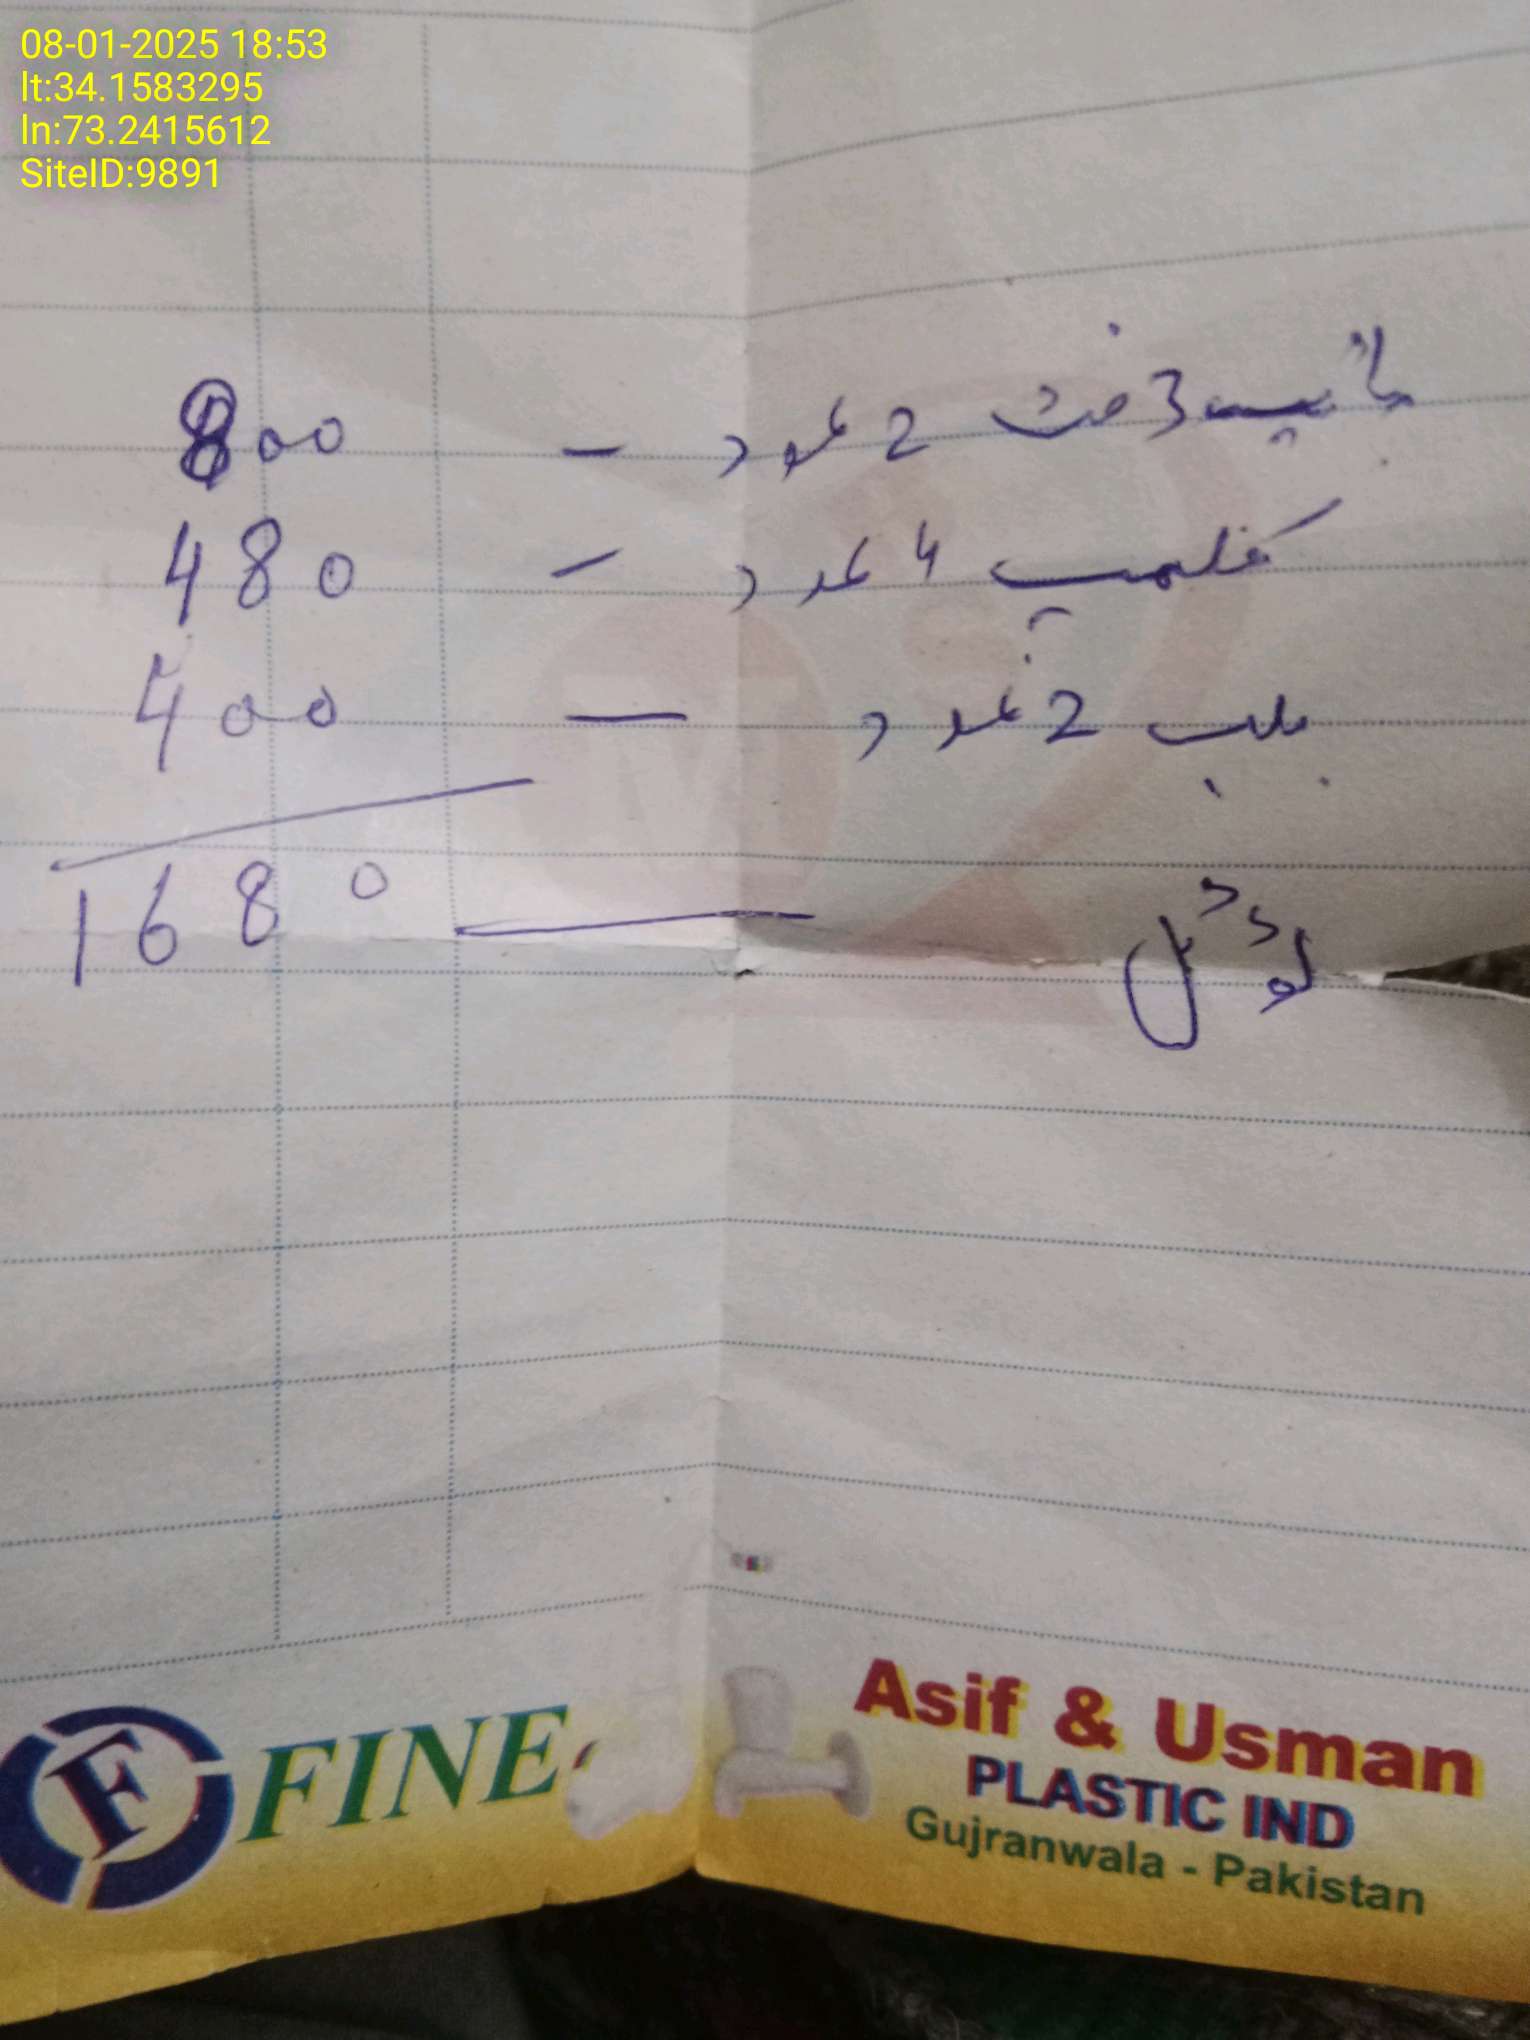 08-01-2025 18:53
lt:34.1583295
ln:73.2415612
SiteID:9891
پائیپ 3 فٹ 2 عدد - 800
کلمپ 4 عدد - 480
بلب 2 عدد — 400
ٹوٹل — 1680
F FINE
Asif & Usman
PLASTIC IND
Gujranwala - Pakistan